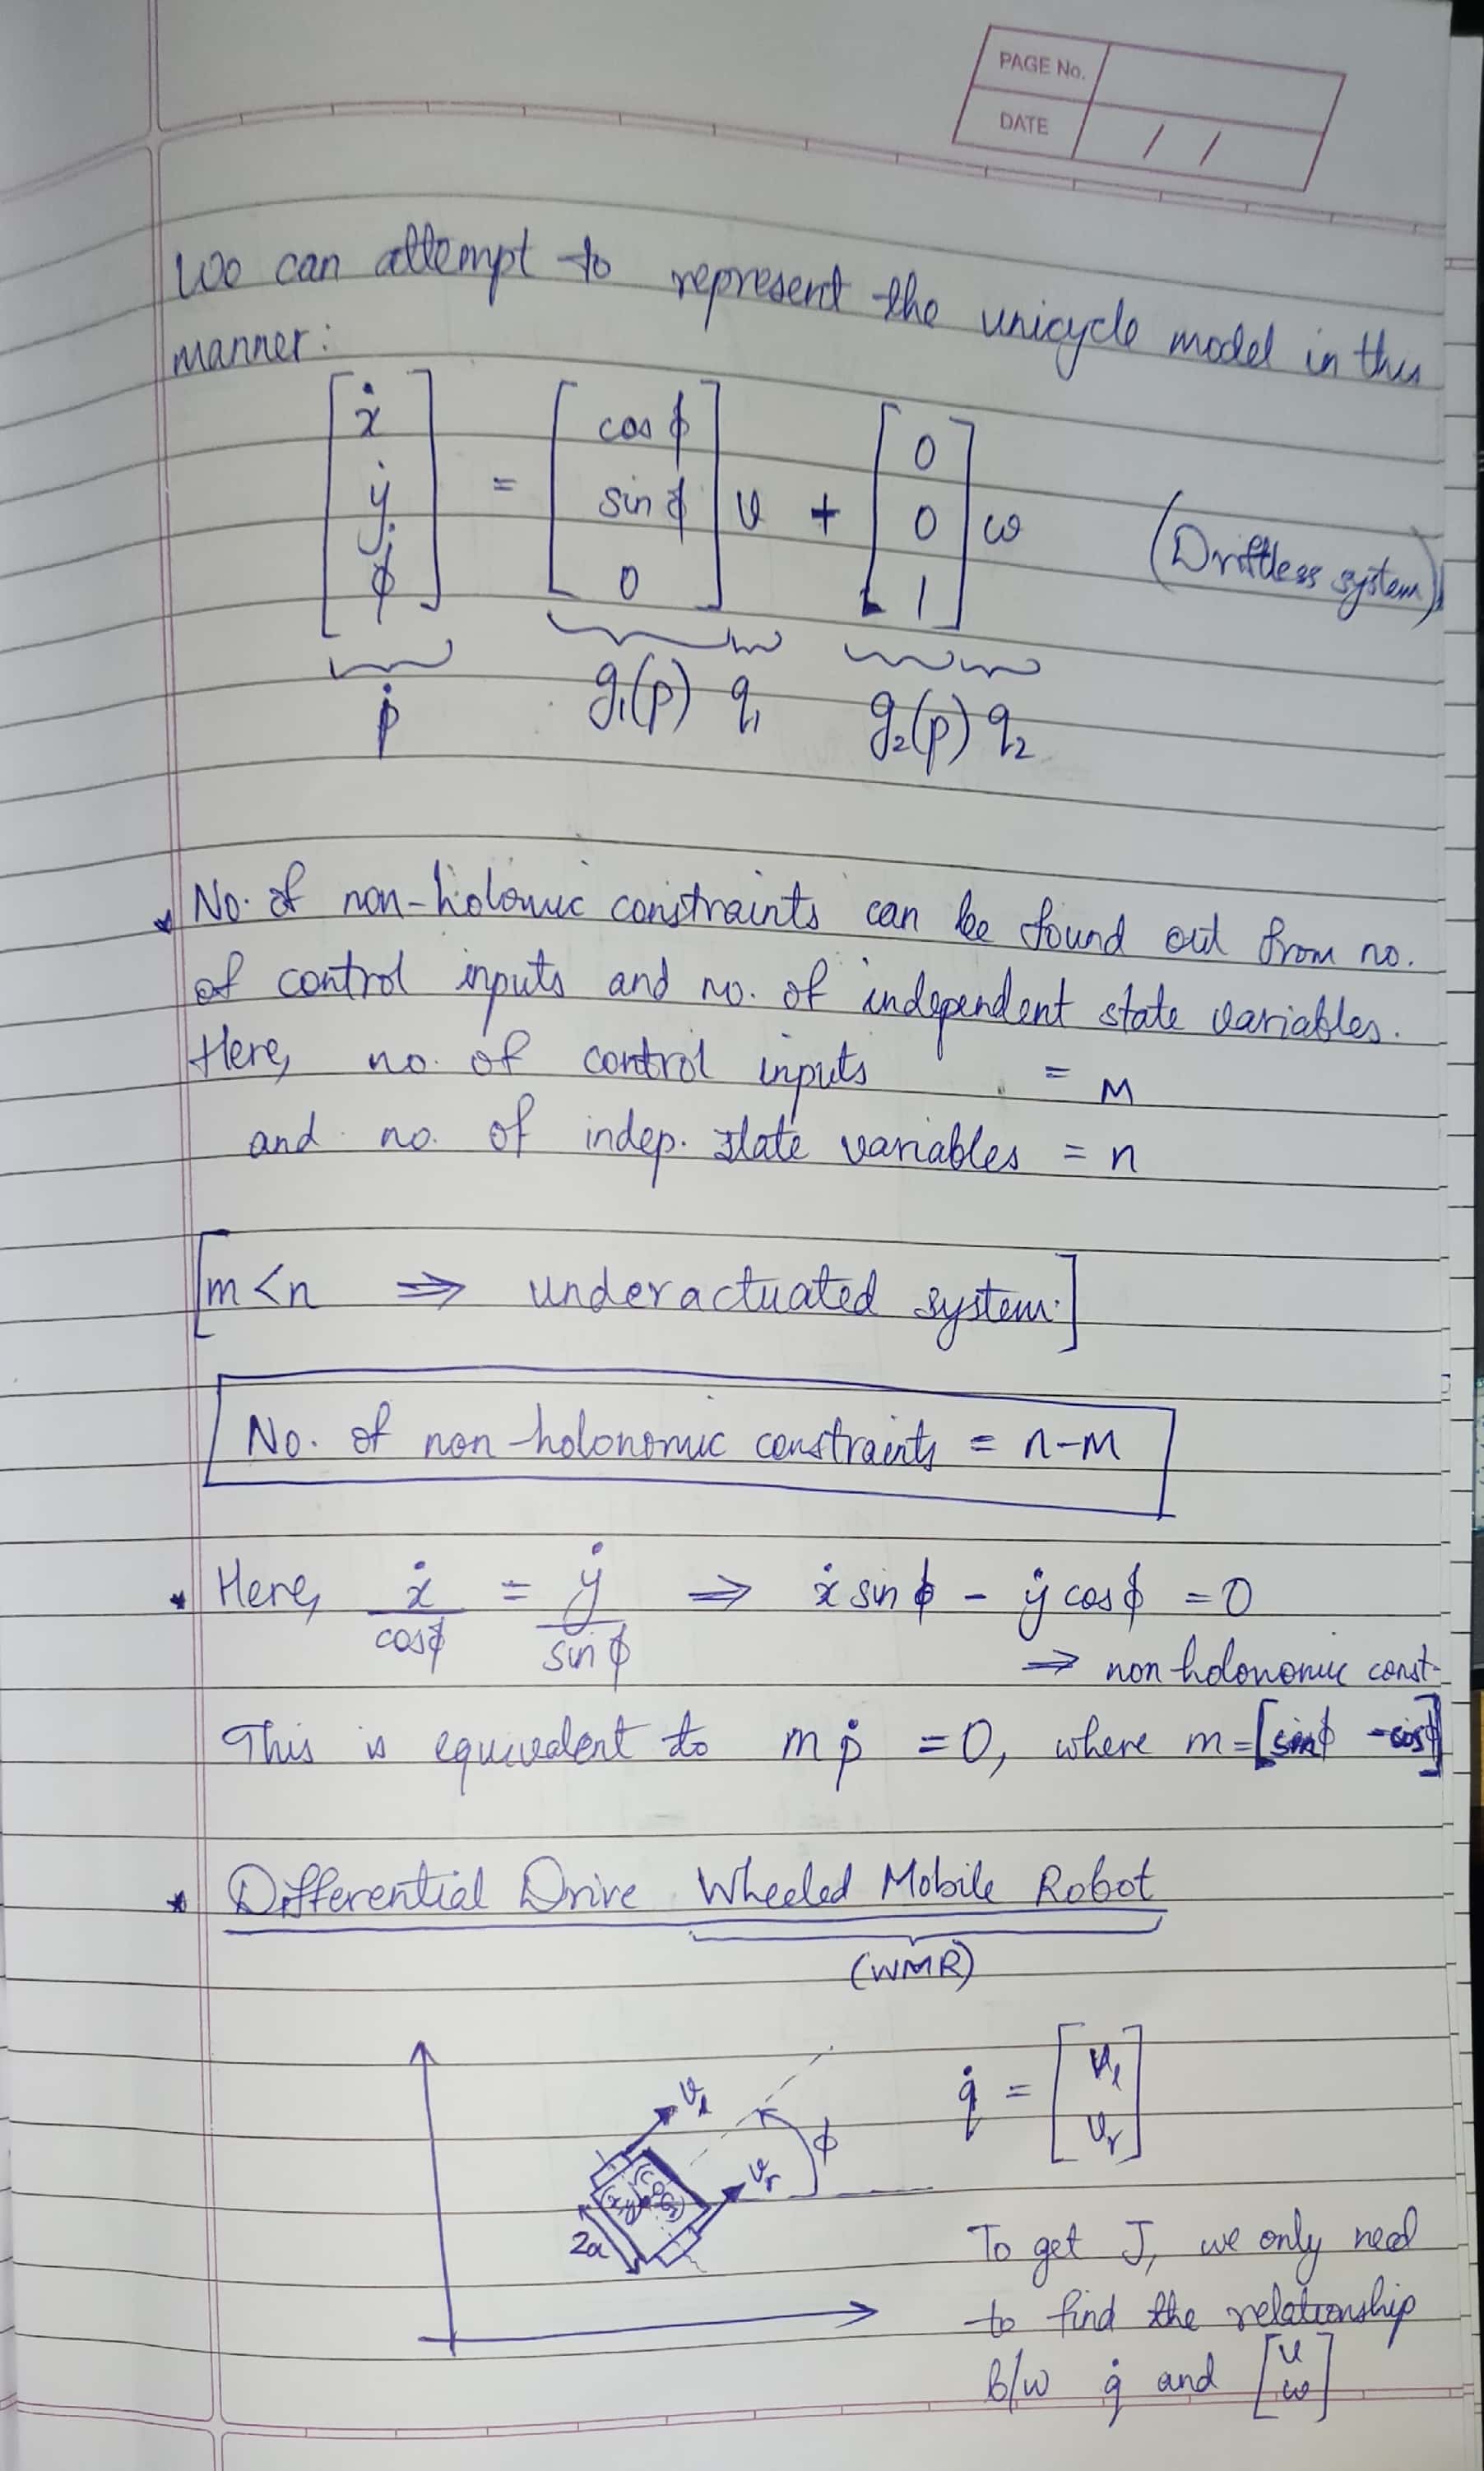 PAGE No.
DATE / /
We can attempt to represent the unicycle model in this
manner:
[ẋ ẏ φ̇] = [cos φ sin φ 0] v + [0 0 1] ω (Driftless system)
ṗ g₁(p) q₁ g₂(p) q₂
* No. of non-holonomic constraints can be found out from no.
of control inputs and no. of independent state variables.
Here, no. of control inputs = m
and no. of indep. state variables = n
[m < n ⇒ underactuated system.]
No. of non-holonomic constraints = n-m
* Here, ẋ/cos φ = ẏ/sin φ ⇒ ẋ sin φ - ẏ cos φ = 0
⇒ non holonomic const.
This is equivalent to m ṗ = 0, where m = [sin φ -cos φ]
* Differential Drive Wheeled Mobile Robot
(WMR)
q̇ = [v_l v_r]
v_l
φ
v_r
2a
To get J, we only need
to find the relationship
b/w q̇ and [v ω]